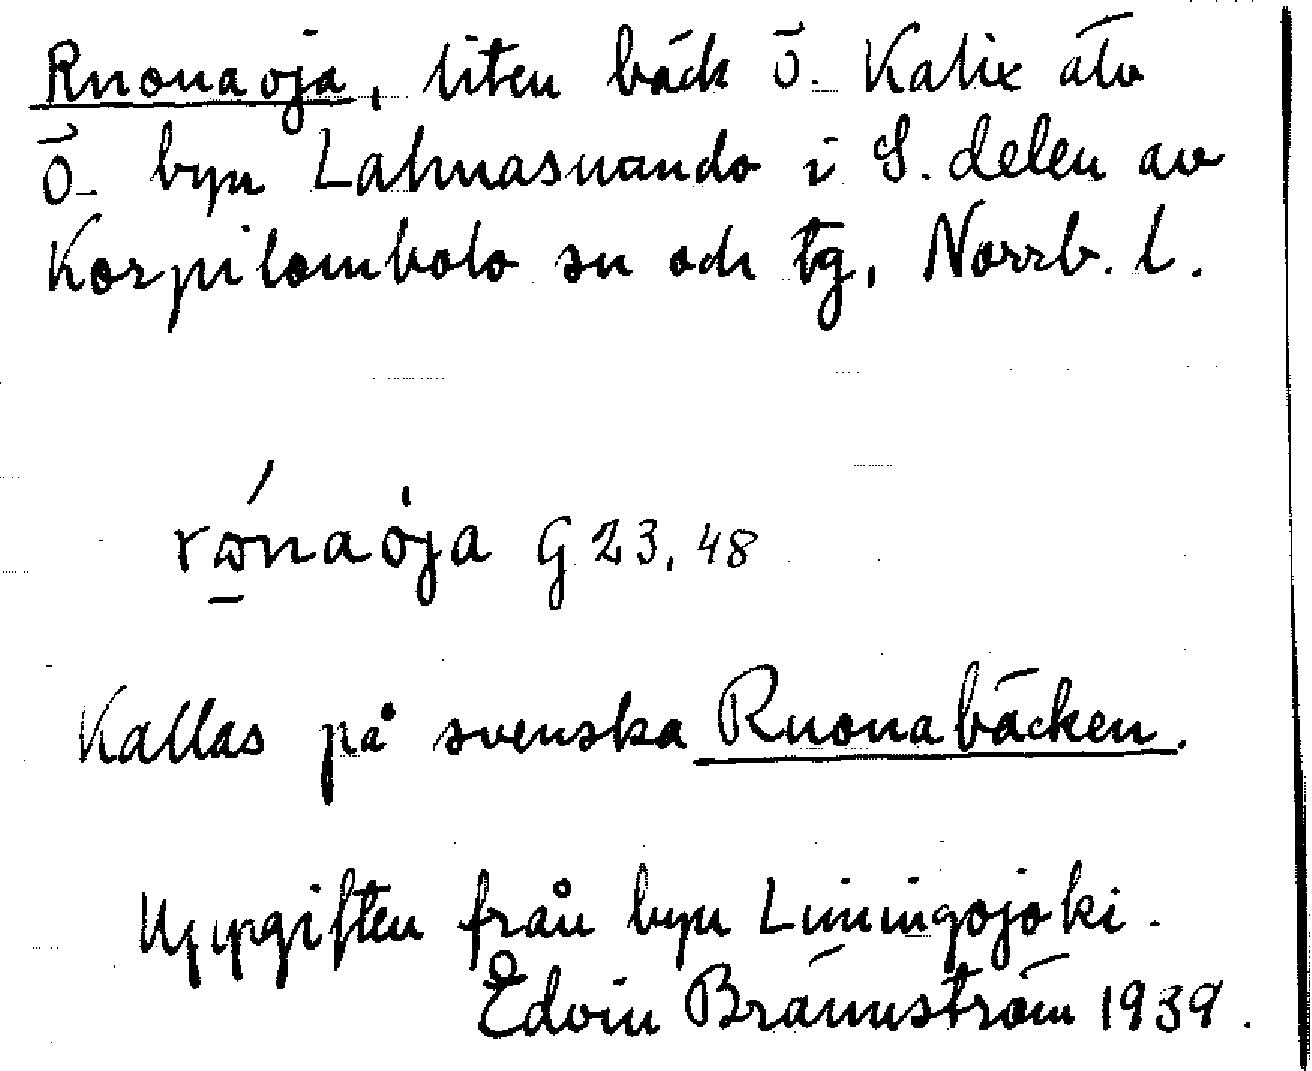 Ruonaoja, liten bäck ö. Kalix älv
ö. byn Lahnasuando i S. delen av
Korpilombolo sn och tg, Norrb. l.
rώ̱naója G 23, 48
Kallas på svenska Ruonabäcken.
Uppgiften från byn Liviningojoki.
Edvin Brännström 1939.